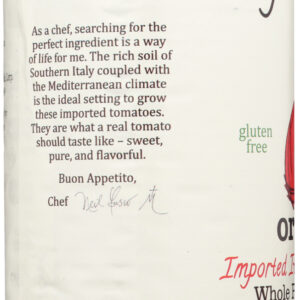 As a chef, searching for the
perfect ingredient is a way
of life for me. The rich soil of
Southern Italy coupled with
the Mediterranean climate
is the ideal setting to grow
these imported tomatoes.
They are what a real tomato
should taste like – sweet,
pure, and flavorful.
Buon Appetito,
Chef
gluten
free
or
Imported I
Whole